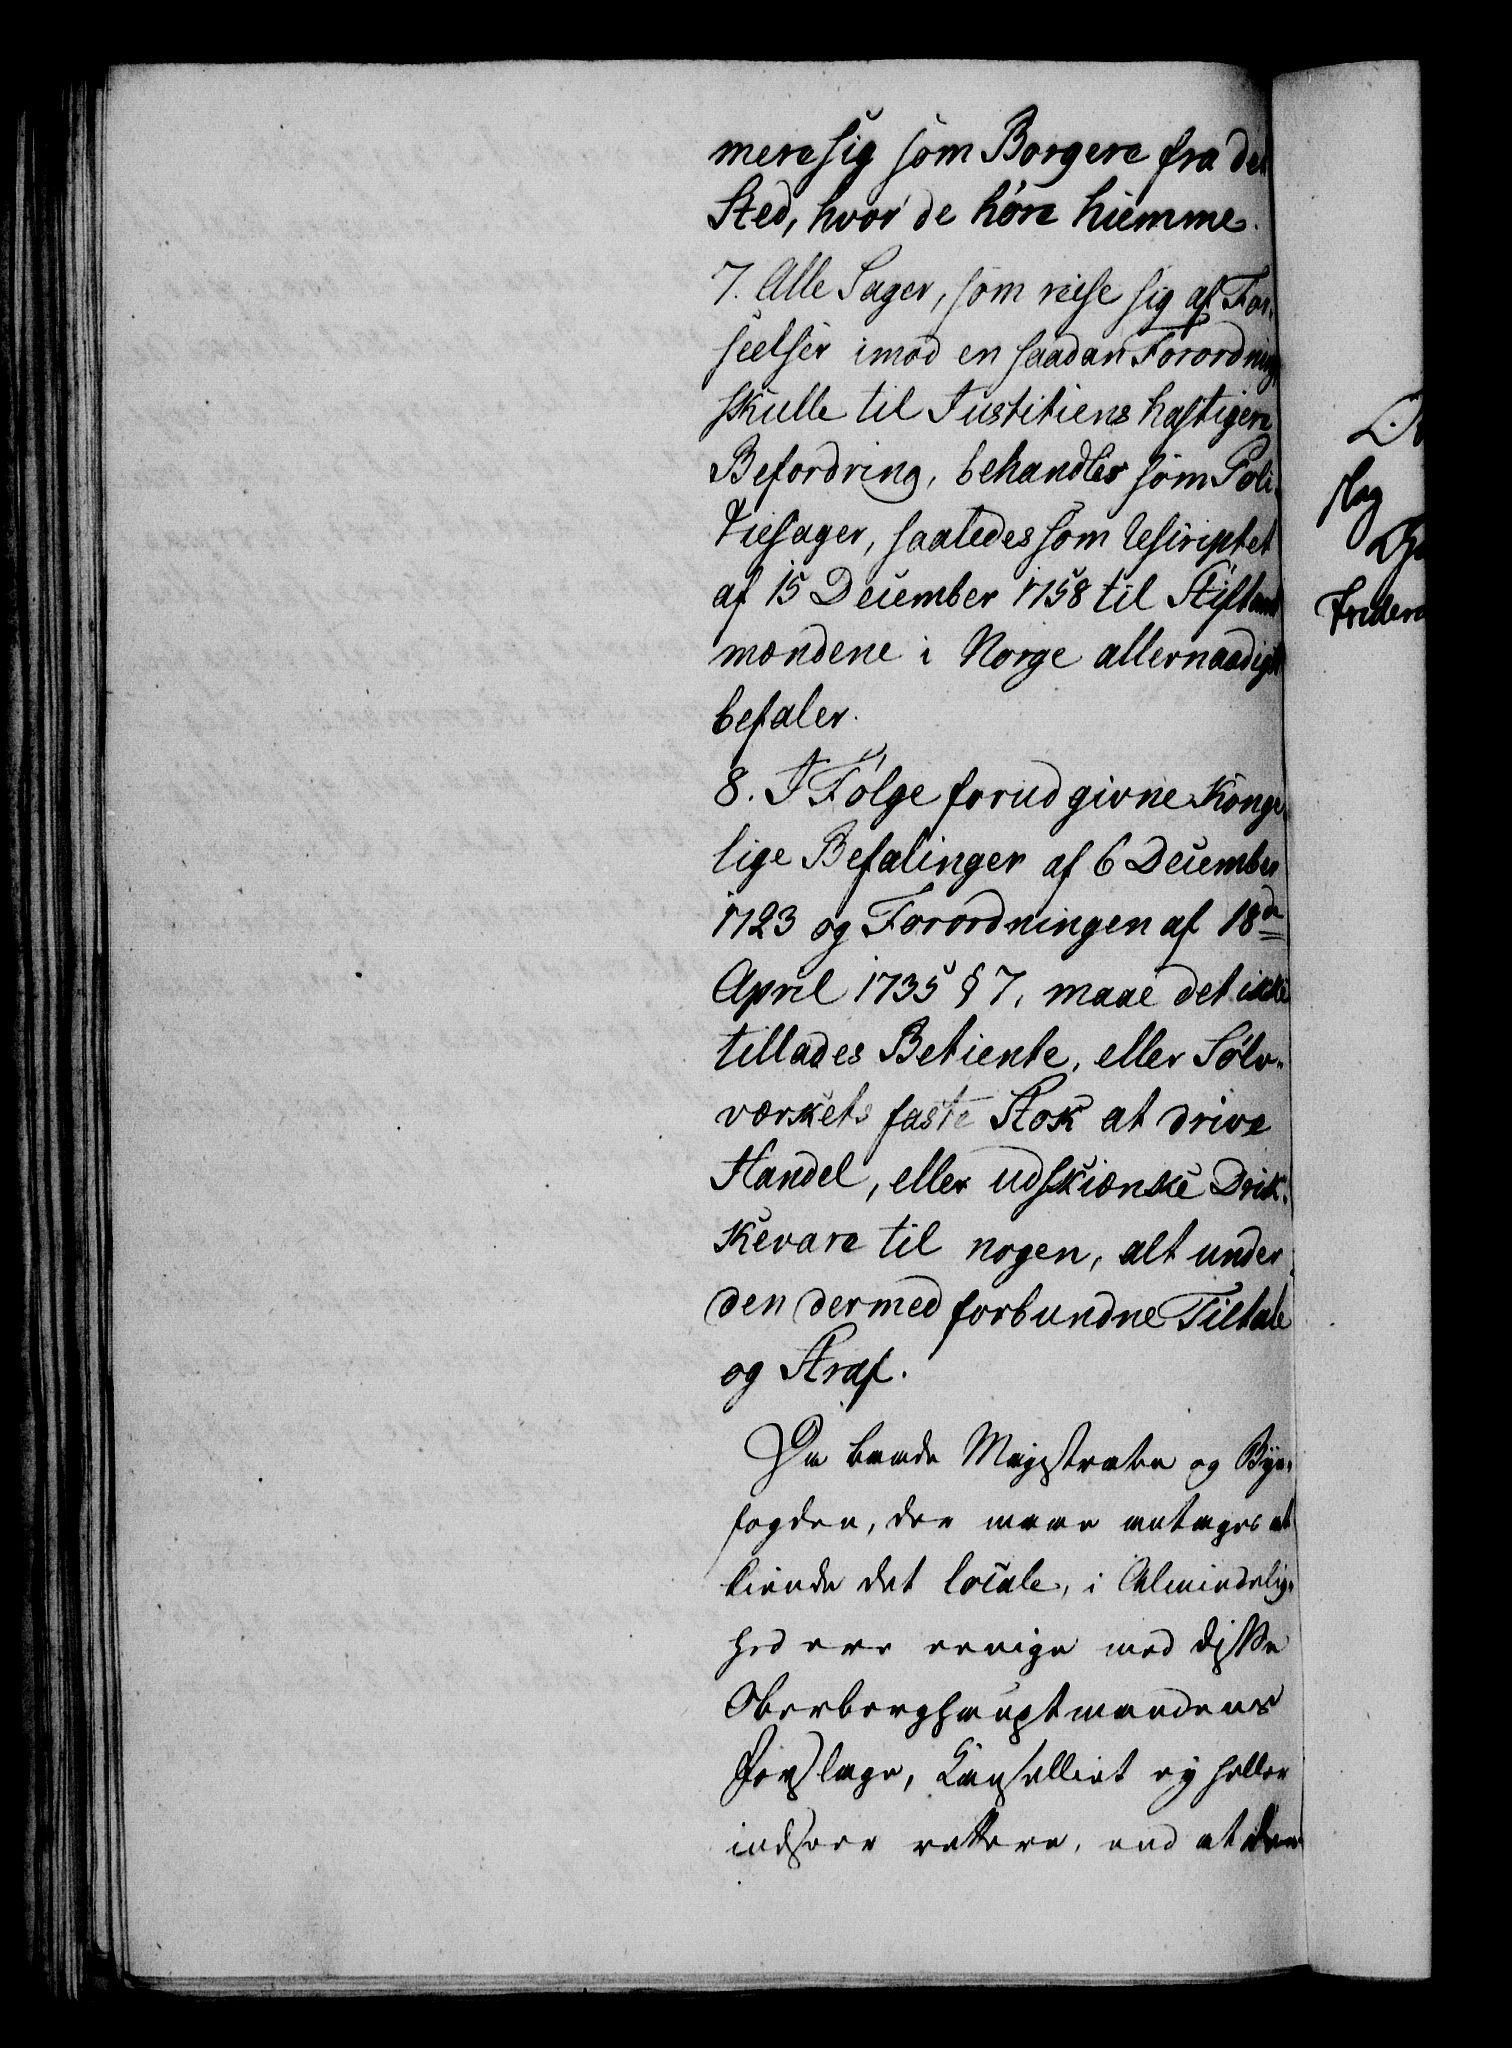 mere sig som Borgere fra det
Sted, hvor de höre hiemme.
7. Alle Sager, som reise sig af For-
seelser imod en saadan Forordning,
skulle til Justitiens hastigere
Befordring, behandles som Poli-
tiesager, saaledes som Rescriptet
af 15 December 1758 til Stiftamt
mændene i Norge allernaadigst
befaler.
8. I Fölge forud givne Konge-
lige Befalinger af 6 December
1723 og Forordningen af 18de
April 1735 § 7, maae det ikke
tillades Betiente, eller Sölv-
værkets faste Stok at drive
Handel, eller udskiænke Drik-
kevare til nogen, alt under
den dermed forbundne Tiltale
og Straf.
Da baade Magistraten og Bye-
fogden, der maae antages at
kiende det locale, i Almindelig-
hed ere eenige med disse
Oberberghauptmandens
Forslage, Cancelliet ey heller
indseer rettere, end at den
slag